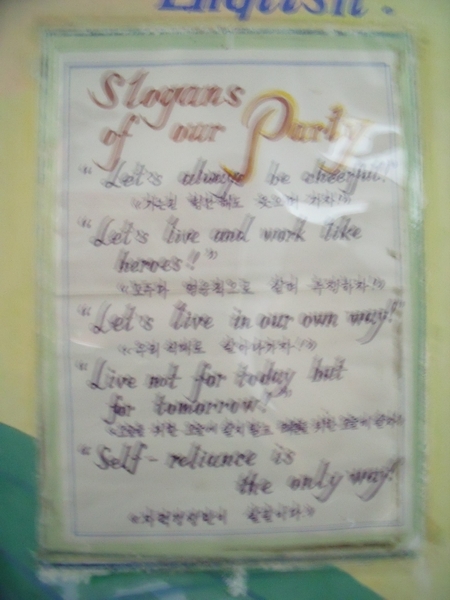 English.
Slogans
of our Party
"Let's always be cheerful!"
《가는길 험난해도 웃으며 가자!》
"Let's live and work like
heroes!"
"Let's live in our own way!"
《우리 식대로 살아나가자!》
"Live not for today but
for tomorrow!"
"Self-reliance is
the only way!"
《자력갱생만이 살길이다》